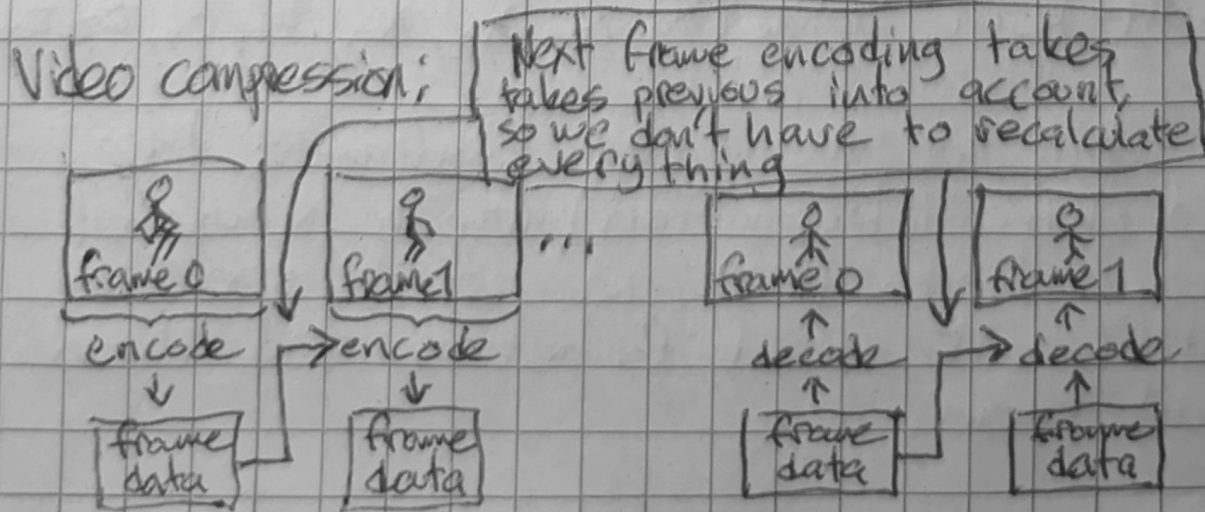 Video compression:
Next frame encoding takes
takes previous into account,
so we don't have to recalculate
everything
frame 0
frame 1
...
frame 0
frame 1
encode
encode
decode
decode
frame
data
frame
data
frame
data
frame
data